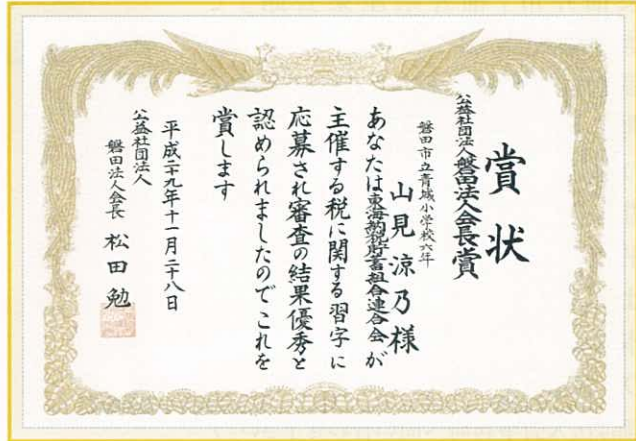 賞状
公益社団法人磐田法人会長賞
磐田市立青城小学校六年
山見涼乃様
あなたは東海納税貯蓄組合連合会が
主催する税に関する習字に
応募され審査の結果優秀と
認められましたのでこれを
賞します
平成二十九年十一月二十八日
公益社団法人
磐田法人会長 松田勉